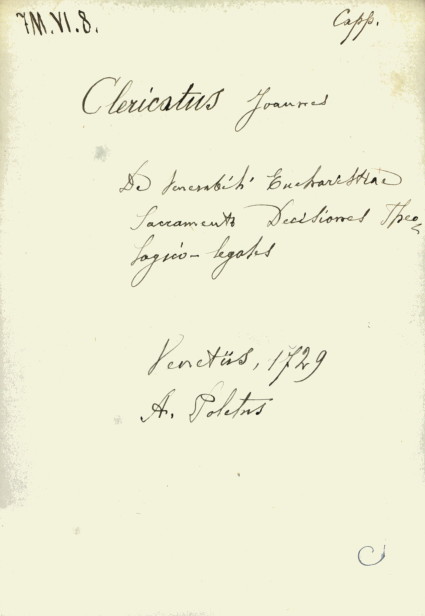 7M.VI.8.
Capp.
Clericatus Joannes
De Venerabili Eucharistiae
Sacramento Decisiones Theo-
logico-legales
Venetiis, 1729
A. Poletus